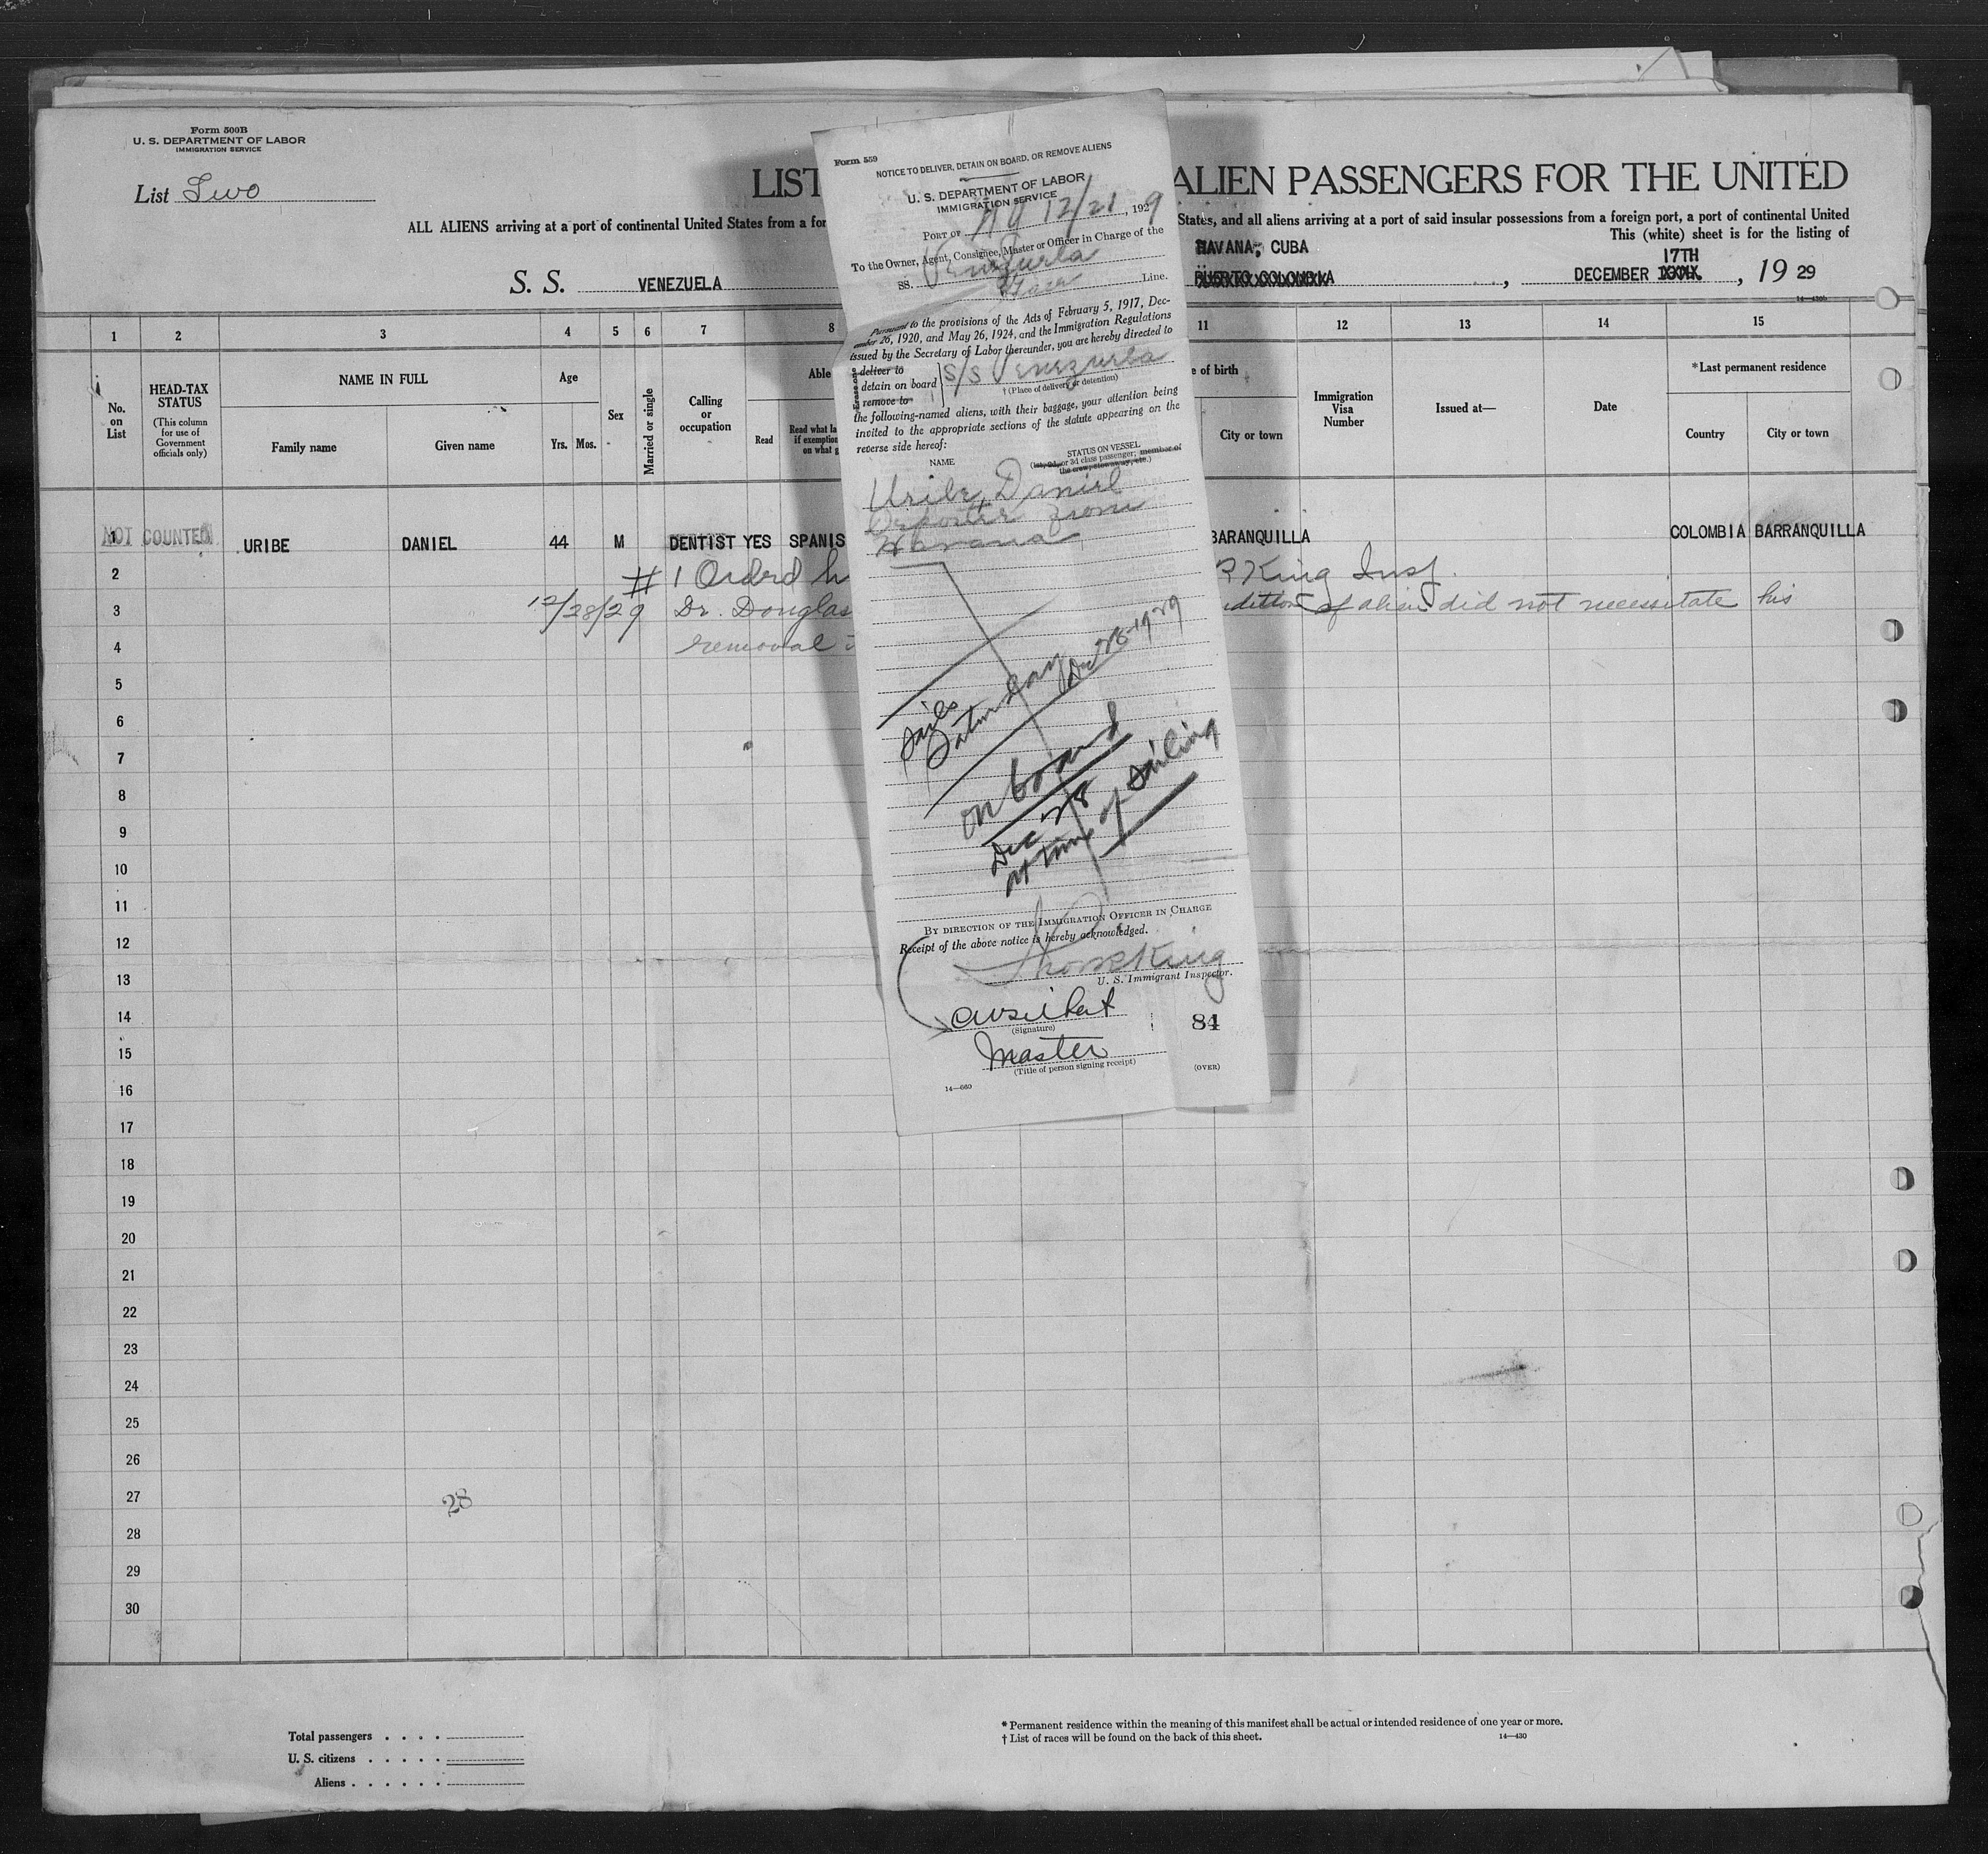 Form 500B
U. S. DEPARTMENT OF LABOR
IMMIGRATION SERVICE
List Two
LIST
ALIEN PASSENGERS FOR THE UNITED
ALL ALIENS arriving at a port of continental United States from a for
States, and all aliens arriving at a port of said insular possessions from a foreign port, a port of continental United
This (white) sheet is for the listing of
S. S. VENEZUELA
HAVANA, CUBA
PUERTO COLOMBIA
17TH
DECEMBER , 19 29
14—430b
1 2 3 4 5 6 7 8 11 12 13 14 15
No. on List
HEAD-TAX STATUS
(This column for use of Government officials only)
NAME IN FULL
Family name
Given name
Age
Yrs. Mos.
Sex
Married or single
Calling or occupation
Able
Read
Read what la
if exemption
on what g
e of birth
City or town
Immigration Visa Number
Issued at—
Date
* Last permanent residence
Country
City or town
NOT COUNTED
1 URIBE DANIEL 44 M DENTIST YES SPANIS
BARANQUILLA
COLOMBIA BARRANQUILLA
2 # 1 Ordrd
King Insp.
3 12/28/29 Dr. Douglas
of alien did not necessitate his
4 removal
5
6
7
8
9
10
11
12
13
14
15
16
17
18
19
20
21
22
23
24
25
26
27
28
28
29
30
Total passengers
U. S. citizens
Aliens
* Permanent residence within the meaning of this manifest shall be actual or intended residence of one year or more.
† List of races will be found on the back of this sheet.
14—430
Form 559
NOTICE TO DELIVER, DETAIN ON BOARD, OR REMOVE ALIENS
U. S. DEPARTMENT OF LABOR
IMMIGRATION SERVICE
PORT OF NY 12/21, 1929
To the Owner, Agent, Consignee, Master or Officer in Charge of the
SS. Venezuela
Line.
Pursuant to the provisions of the Acts of February 5, 1917, Dec-
ember 26, 1920, and May 26, 1924, and the Immigration Regulations
issued by the Secretary of Labor thereunder, you are hereby directed to
Erase one
deliver to
detain on board
remove to
S/S Venezuela
† (Place of delivery or detention)
the following-named aliens, with their baggage, your attention being
invited to the appropriate sections of the statute appearing on the
reverse side hereof:
NAME
STATUS ON VESSEL
(1st, 2d, or 3d class passenger, member of
the crew, stowaway, etc.)
Uribe, Daniel
from
Havana
Sails
Saturday Dec 28-1929
on board
Dec 28
at time of sailing
BY DIRECTION OF THE IMMIGRATION OFFICER IN CHARGE
Receipt of the above notice is hereby acknowledged.
King
U. S. Immigrant Inspector.
(Signature)
84
Master
(Title of person signing receipt)
14—660
(OVER)